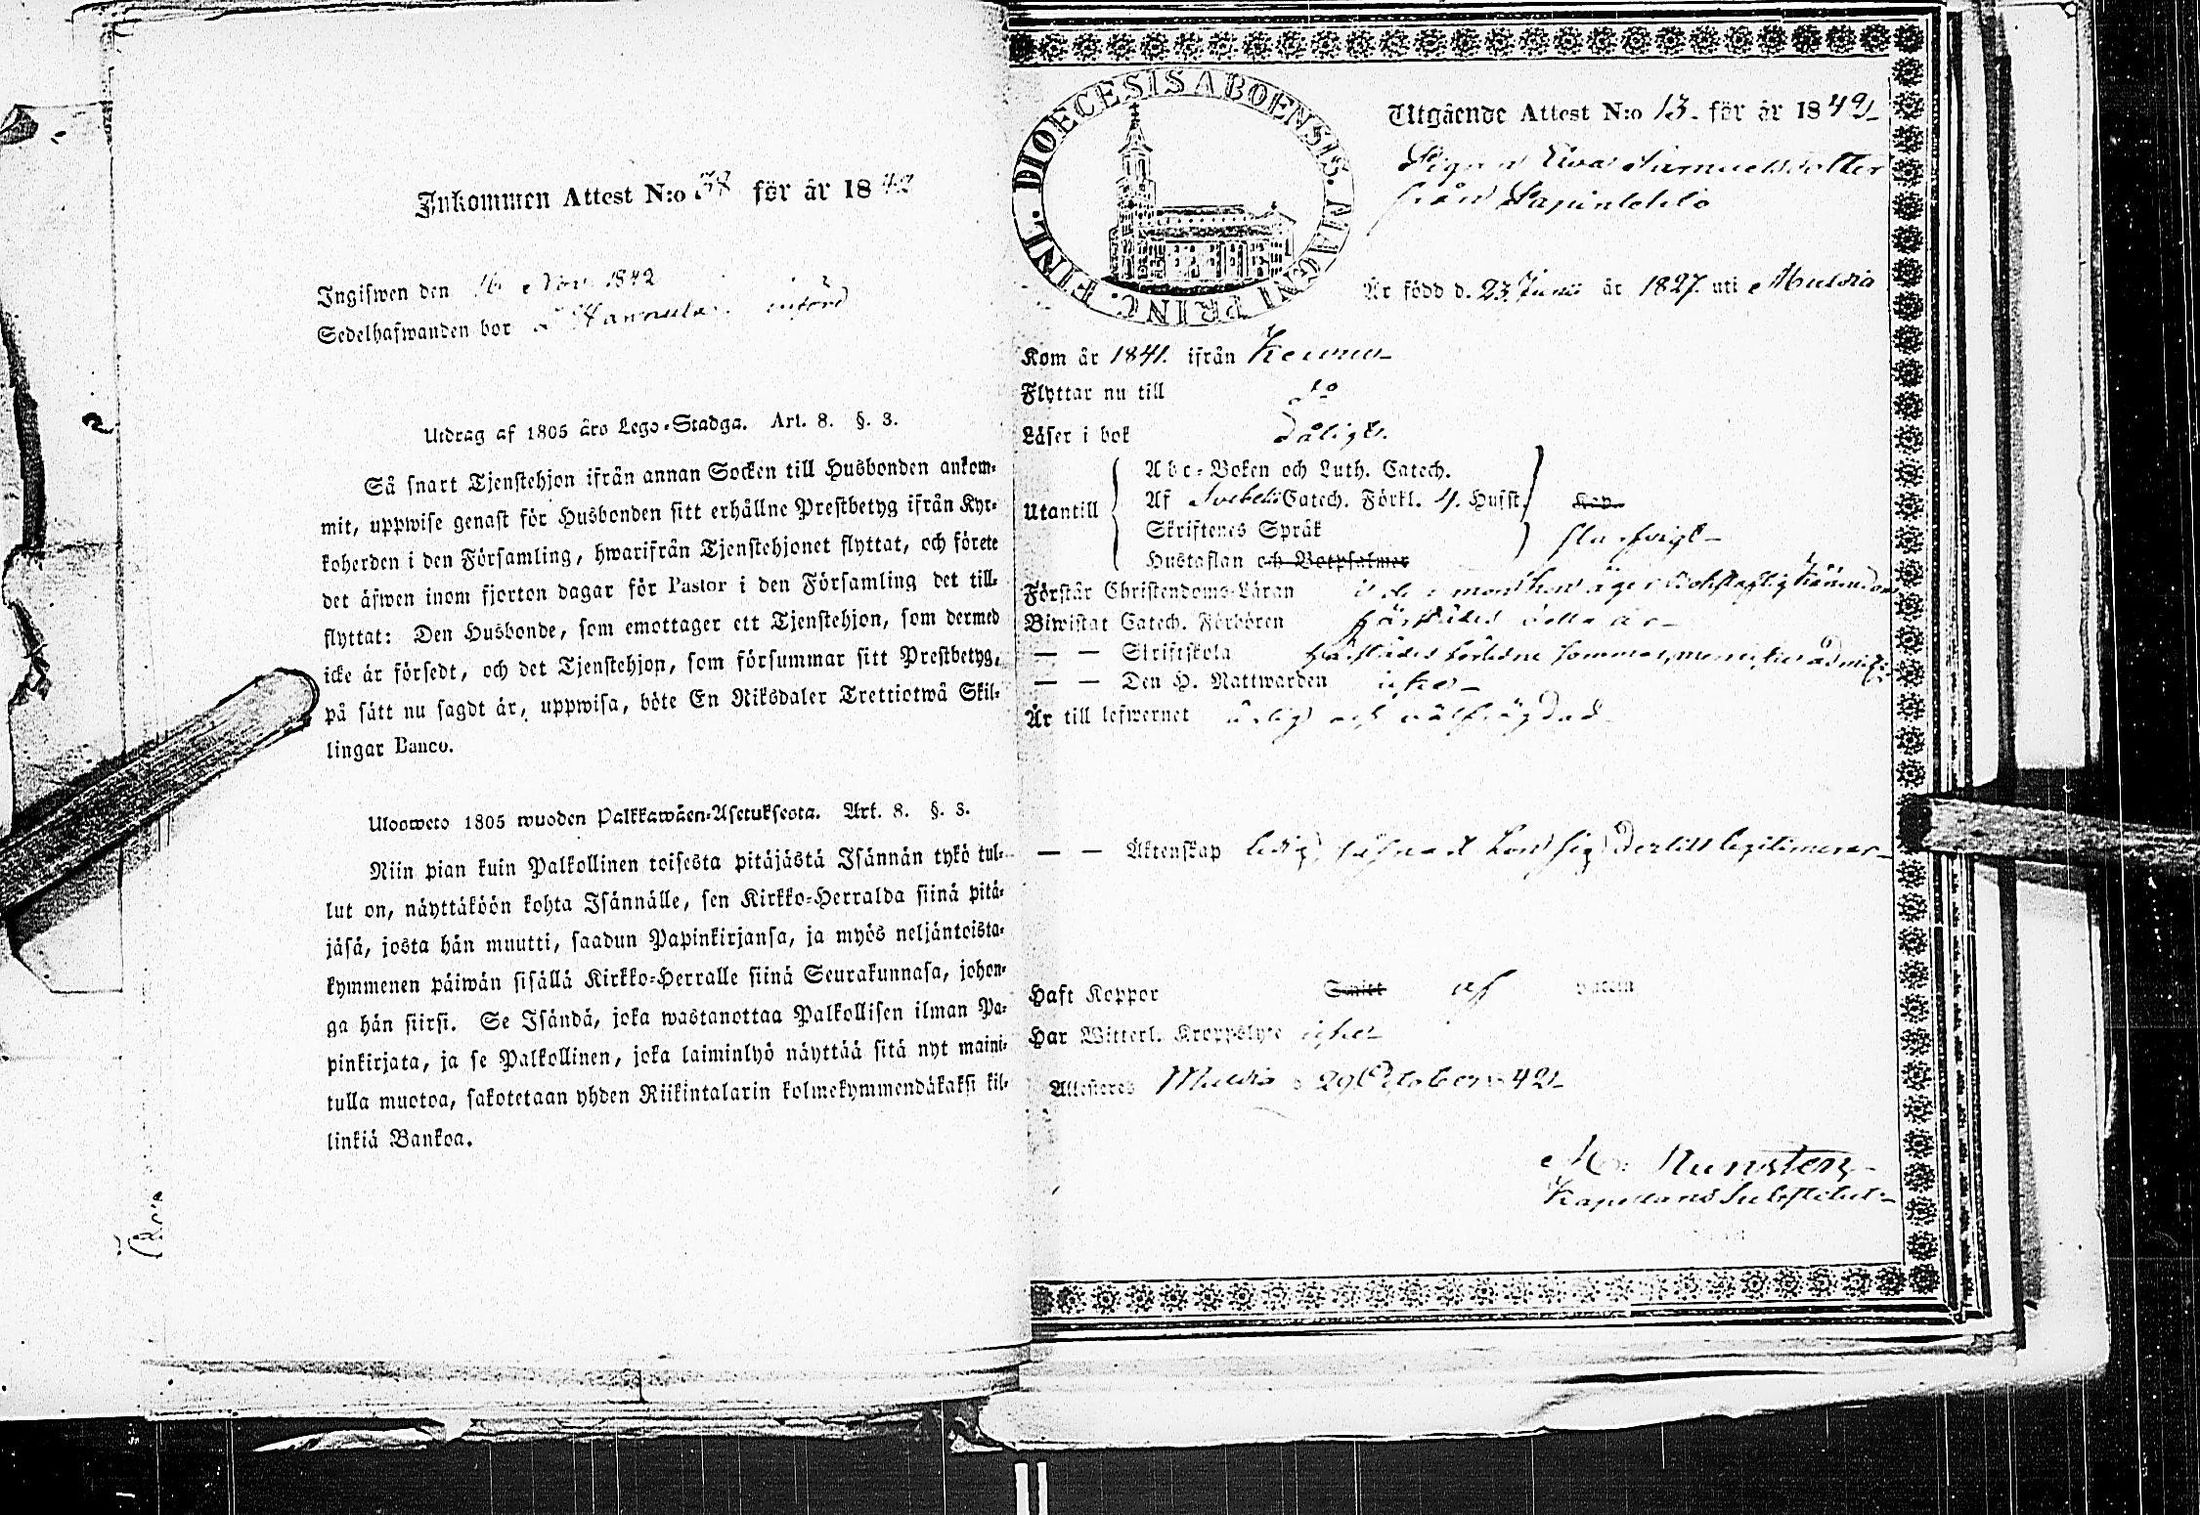 Inkommen Attest N:o 38 för år 1842
Ingifwen den 16 Nov. 1842
Sedelhafwanden bor
Utdrag af 1805 års Lego-Stadga. Art. 8. §. 3.
Så snart Tjenstehjon ifrån annan Socken till Husbonden ankom-
mit, uppwise genast för Husbonden sitt erhållne Prestbetyg ifrån Kyr-
koherden i den Församling, hwarifrån Tjenstehjonet flyttat, och förete
det äfwen inom fjorton dagar för Pastor i den Församling det till-
flyttat: Den Husbonde, som emottager ett Tjenstehjon, som dermed
icke är försedt, och det Tjenstehjon, som försummar sitt Prestbetyg,
på sätt nu sagdt är, uppwisa, böte En Riksdaler Trettiotwå Skil-
lingar Banco.
Ulosweto 1805 wuoden Palkkawäen-Asetuksesta. Art. 8. §. 3.
Niin pian kuin Palkollinen toisesta pitäjästä Isännän tykö tul-
lut on, näyttäköön kohta Isännälle, sen Kirkko-Herralda siinä pitä-
jäsä, josta hän muutti, saadun Papinkirjansa, ja myös neljäntoista-
kymmenen päiwän sisällä Kirkko-Herralle siinä Seurakunnasa, johon-
ga hän siirsi. Se Isändä, joka wastanottaa Palkollisen ilman Pa-
pinkirjata, ja se Palkollinen, joka laiminlyö näyttää sitä nyt maini-
tulla muotoa, sakotetaan yhden Riikintalarin kolmekymmendäkaksi kil-
linkiä Bankoa.
DIOECESIS ABOENSIS. MAGNI PRINC. FINL.
Utgående Attest N:o 13. för år 1842
Pigan Eva Samuelsdotter
från Papinlehto
Är född d. 23 Junii år 1827. uti Mulsia
Kom år 1841. ifrån Keuru
Flyttar nu till do
Läser i bok dåligt.
Utantill
Abc-Boken och Luth. Catech.
Af Svebelii Catech. Förkl. 4. Hufst.
Skriftenes Språk
Hustaflan och Botpsalmer
Förstår Christendoms-Läran
Biwistat Catech. Förhören härstädes detta år
— — Skriftskola härstädes förledne sommar, men icke admitt.
— — Den H. Nattwarden icke
Är till lefwernet ärlig och välfrägdad
— — Äktenskap ledig, dertill legitimerar
Haft Koppor Smitt af naturen
Har Witterl. Kroppslyte icke
Attesteres Mulsia d 29 October 42
Kapellans Substitut